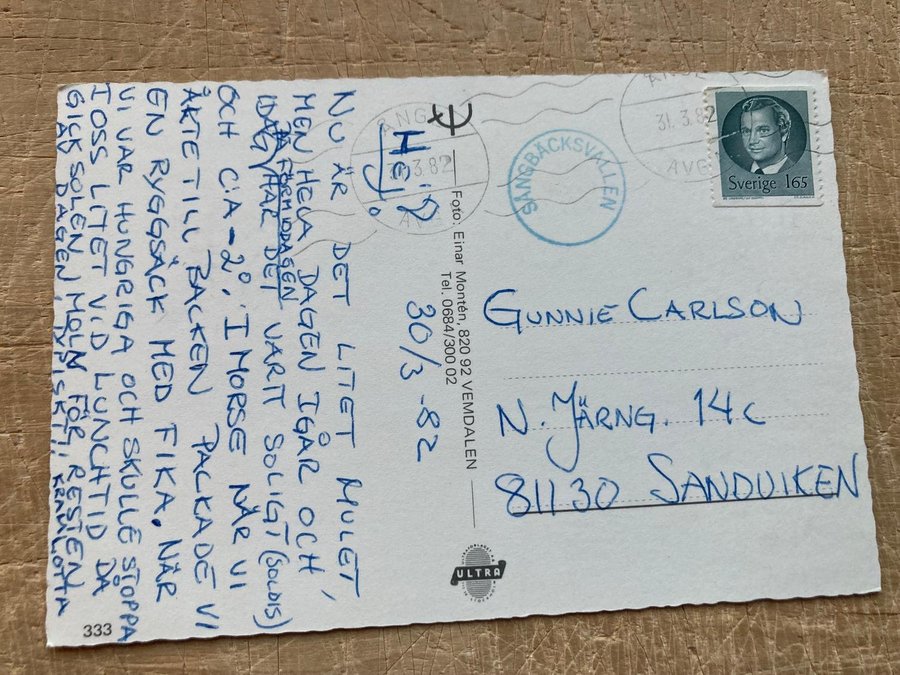 Hej!
30/3 -82
NU ÄR DET LITET MULET,
MEN HELA DAGEN IGÅR OCH
PÅ FÖRMIDDAGEN
IDAG HAR DET VARIT SOLIGT (SOLDIS)
OCH C:A -2°. I MORSE NÄR VI
ÅKTE TILL BACKEN PACKADE VI
EN RYGGSÄCK MED FIKA. NÄR
VI VAR HUNGRIGA OCH SKULLE STOPPA
I OSS LITET VID LUNCHTID DÅ
GICK SOLEN I MOLN FÖR RESTEN
AV DAGEN, TYPISKT! KRAM LOTTA
333
Foto: Einar Montén, 820 92 VEMDALEN
Tel. 0684/300 02
ULTRA
31.3.82
AVG
Sverige 165
GUNNIE CARLSON
N. JÄRNG. 14c
81130 SANDVIKEN